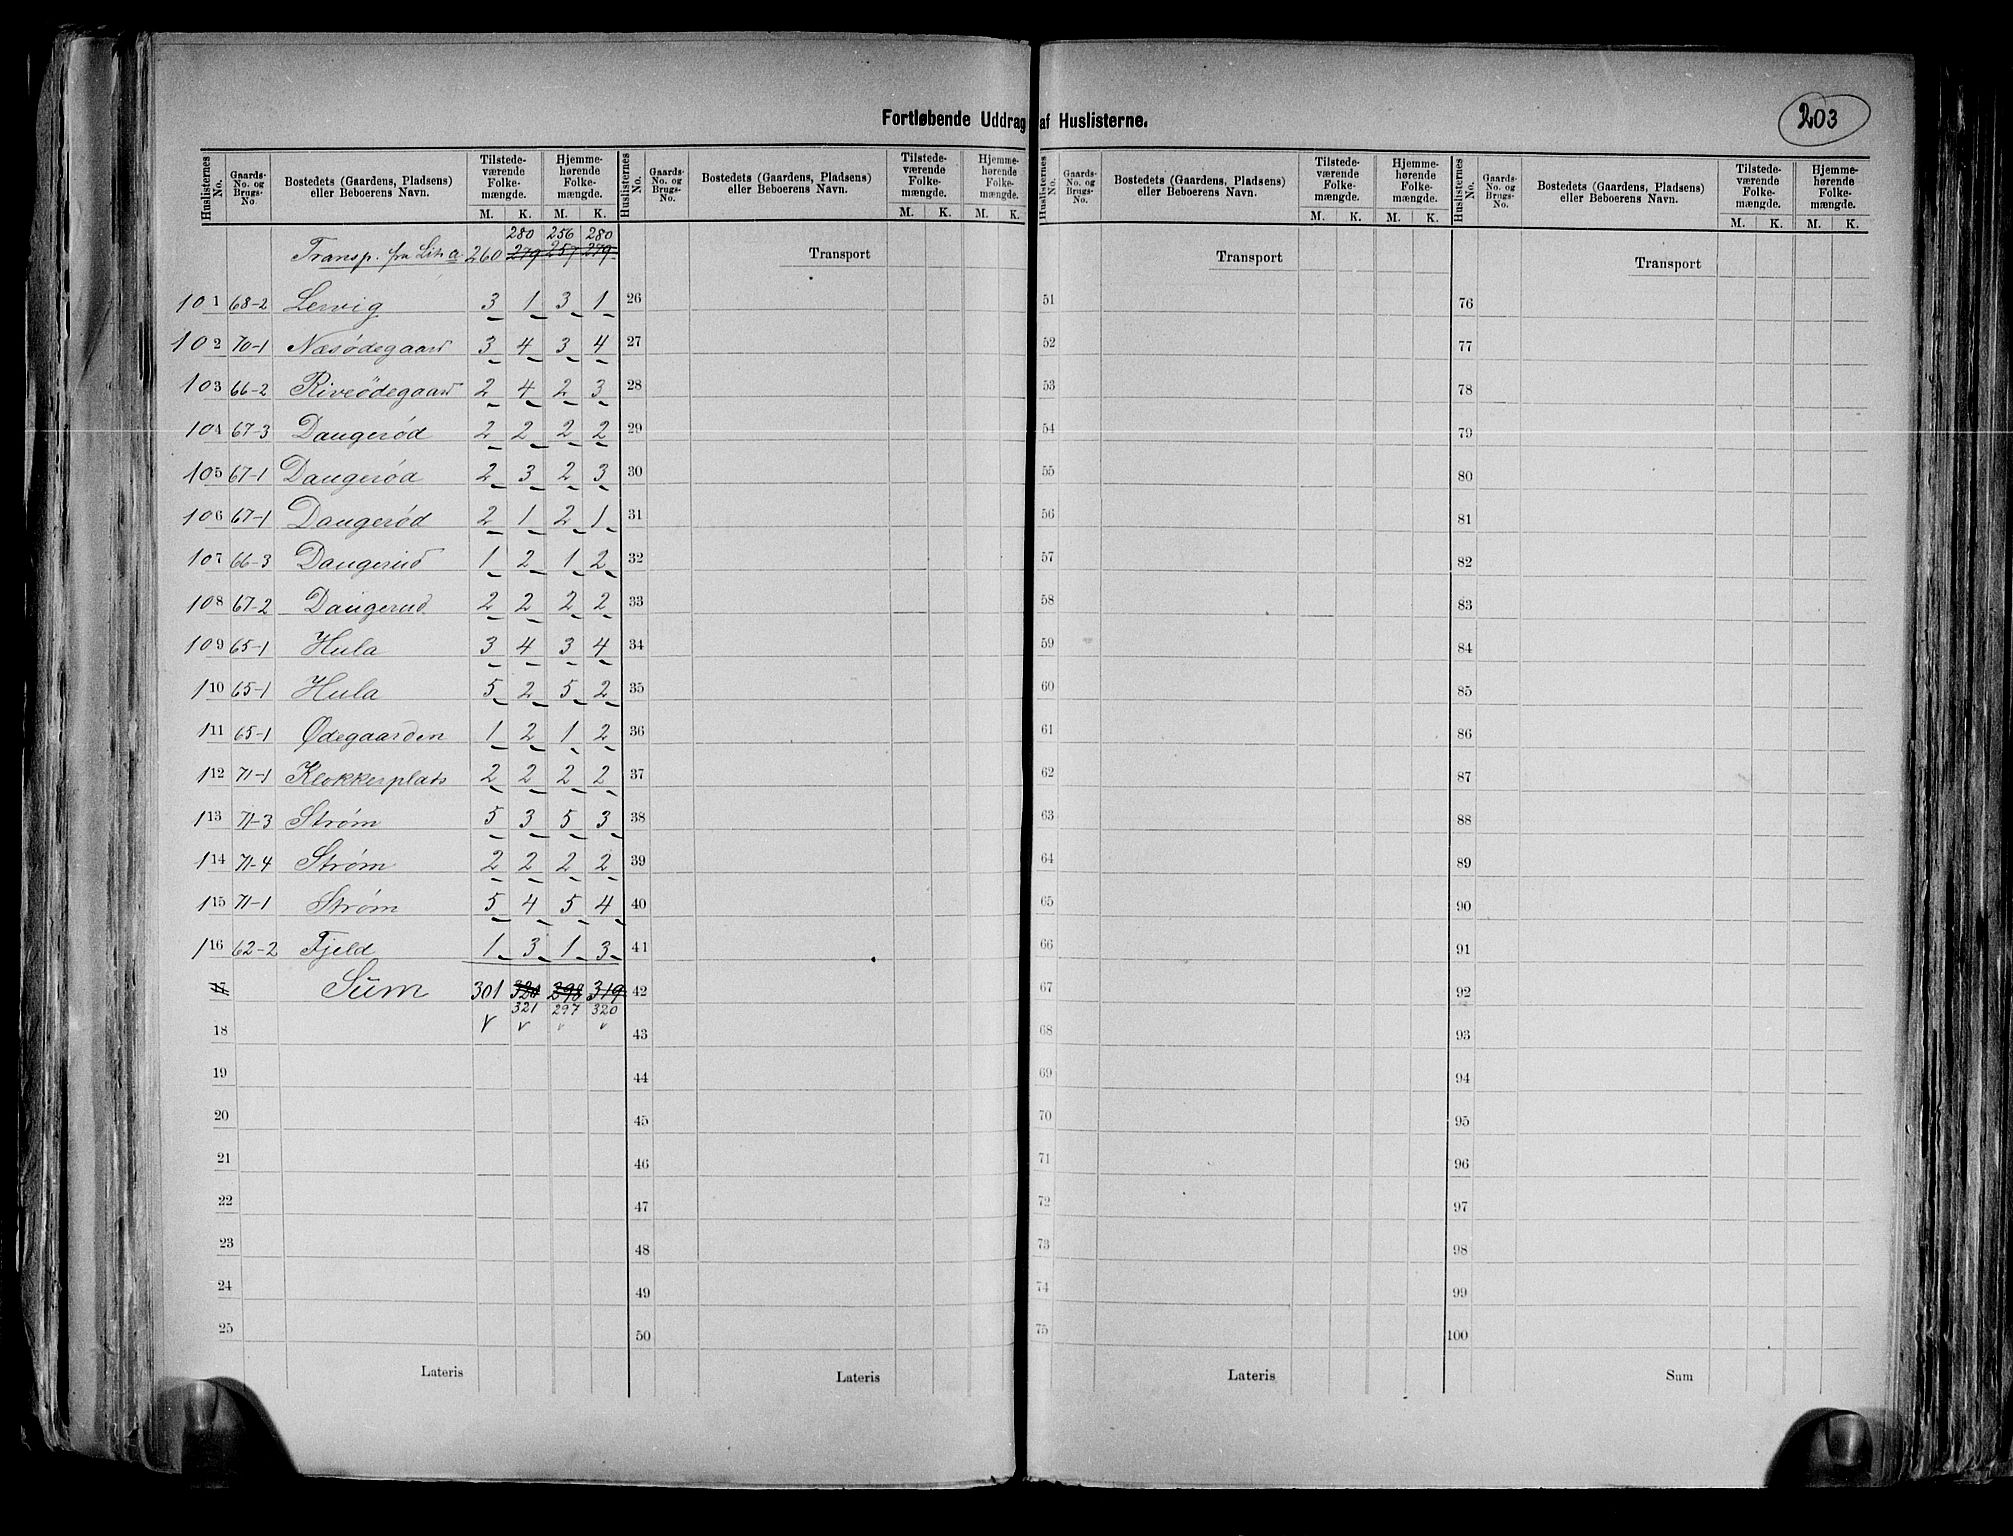 203
Fortløbende Uddrag af Huslisterne.
Huslisternes No. | Gaards-No. og Brugs-No. | Bostedets (Gaardens, Pladsens) eller Beboerens Navn. | Tilstedeværende Folkemængde. M. K. | Hjemmehørende Folkemængde. M. K.
280 256 280
Transp. fra Litr a 260 279 257 279
101 68-2 Lervig 3 1 3 1
102 70-1 Næsødegaard 3 4 3 4
103 66-2 Riveødegaard 2 4 2 3
104 67-3 Daugerød 2 2 2 2
105 67-1 Daugerød 2 3 2 3
106 67-1 Daugerød 2 1 2 1
107 66-3 Daugerud 1 2 1 2
108 67-2 Daugerud 2 2 2 2
109 65-1 Hula 3 4 3 4
110 65-1 Hula 5 2 5 2
111 65-1 Ødegaarden 1 2 1 2
112 71-1 Klokkerplads 2 2 2 2
113 71-3 Strøm 5 3 5 3
114 71-4 Strøm 2 2 2 2
115 71-1 Strøm 5 4 5 4
116 62-2 Fjeld 1 3 1 3
17 Sum 301 320 298 319
321 297 320
18
19
20
21
22
23
24
25
Lateris
Huslisternes No. | Gaards-No. og Brugs-No. | Bostedets (Gaardens, Pladsens) eller Beboerens Navn. | Tilstedeværende Folkemængde. M. K. | Hjemmehørende Folkemængde. M. K.
Transport
26
27
28
29
30
31
32
33
34
35
36
37
38
39
40
41
42
43
44
45
46
47
48
49
50
Lateris
Huslisternes No. | Gaards-No. og Brugs-No. | Bostedets (Gaardens, Pladsens) eller Beboerens Navn. | Tilstedeværende Folkemængde. M. K. | Hjemmehørende Folkemængde. M. K.
Transport
51
52
53
54
55
56
57
58
59
60
61
62
63
64
65
66
67
68
69
70
71
72
73
74
75
Lateris
Huslisternes No. | Gaards-No. og Brugs-No. | Bostedets (Gaardens, Pladsens) eller Beboerens Navn. | Tilstedeværende Folkemængde. M. K. | Hjemmehørende Folkemængde. M. K.
Transport
76
77
78
79
80
81
82
83
84
85
86
87
88
89
90
91
92
93
94
95
96
97
98
99
100
Sum